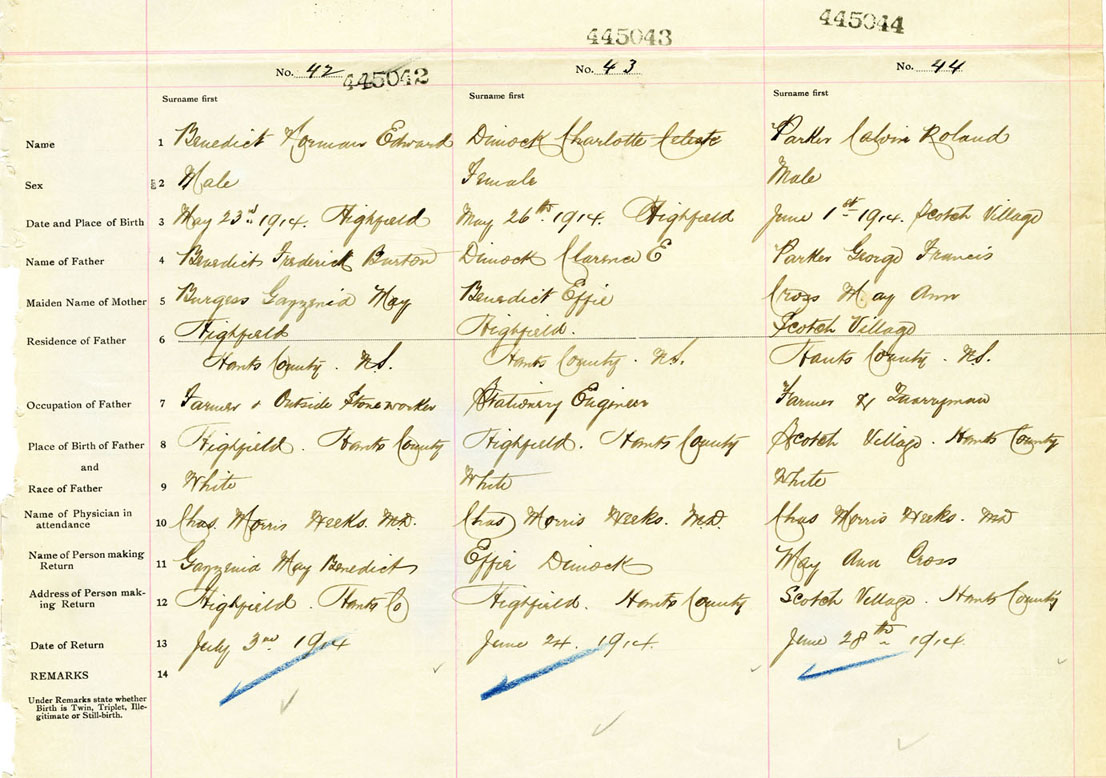 445042 445043 445044
No. 42 No. 43 No. 44
Surname first Surname first Surname first
Name 1 Benedict Norman Edward Dimock Charlotte Celeste Parker Calvin Roland
Sex 2 Male Female Male
Date and Place of Birth 3 May 23rd 1914. Highfield May 26th 1914. Highfield June 1st 1914. Scotch Village
Name of Father 4 Benedict Frederick Burton Dimock Clarence E Parker George Francis
Maiden Name of Mother 5 Burgess Gazzenia May Benedict Effie Cross May Ann
Residence of Father 6 Highfield Highfield. Scotch Village
Hants County. N.S. Hants County. N.S. Hants County. N.S.
Occupation of Father 7 Farmer & Outside Stoneworker Stationery Engineer Farmer & Quarryman
Place of Birth of Father 8 Highfield. Hants County Highfield. Hants County Scotch Village. Hants County
and
Race of Father 9 White White White
Name of Physician in
attendance 10 Chas. Morris Weeks. M.D. Chas Morris Weeks. M.D. Chas Morris Weeks. MD
Name of Person making
Return 11 Gazzenia May Benedict Effie Dimock May Ann Cross
Address of Person mak-
ing Return 12 Highfield. Hants Co Highfield. Hants County Scotch Village. Hants County
Date of Return 13 July 3rd 1914 June 24. 1914. June 28th 1914.
REMARKS 14
Under Remarks state whether
Birth is Twin, Triplet, Ille-
gitimate or Still-birth.